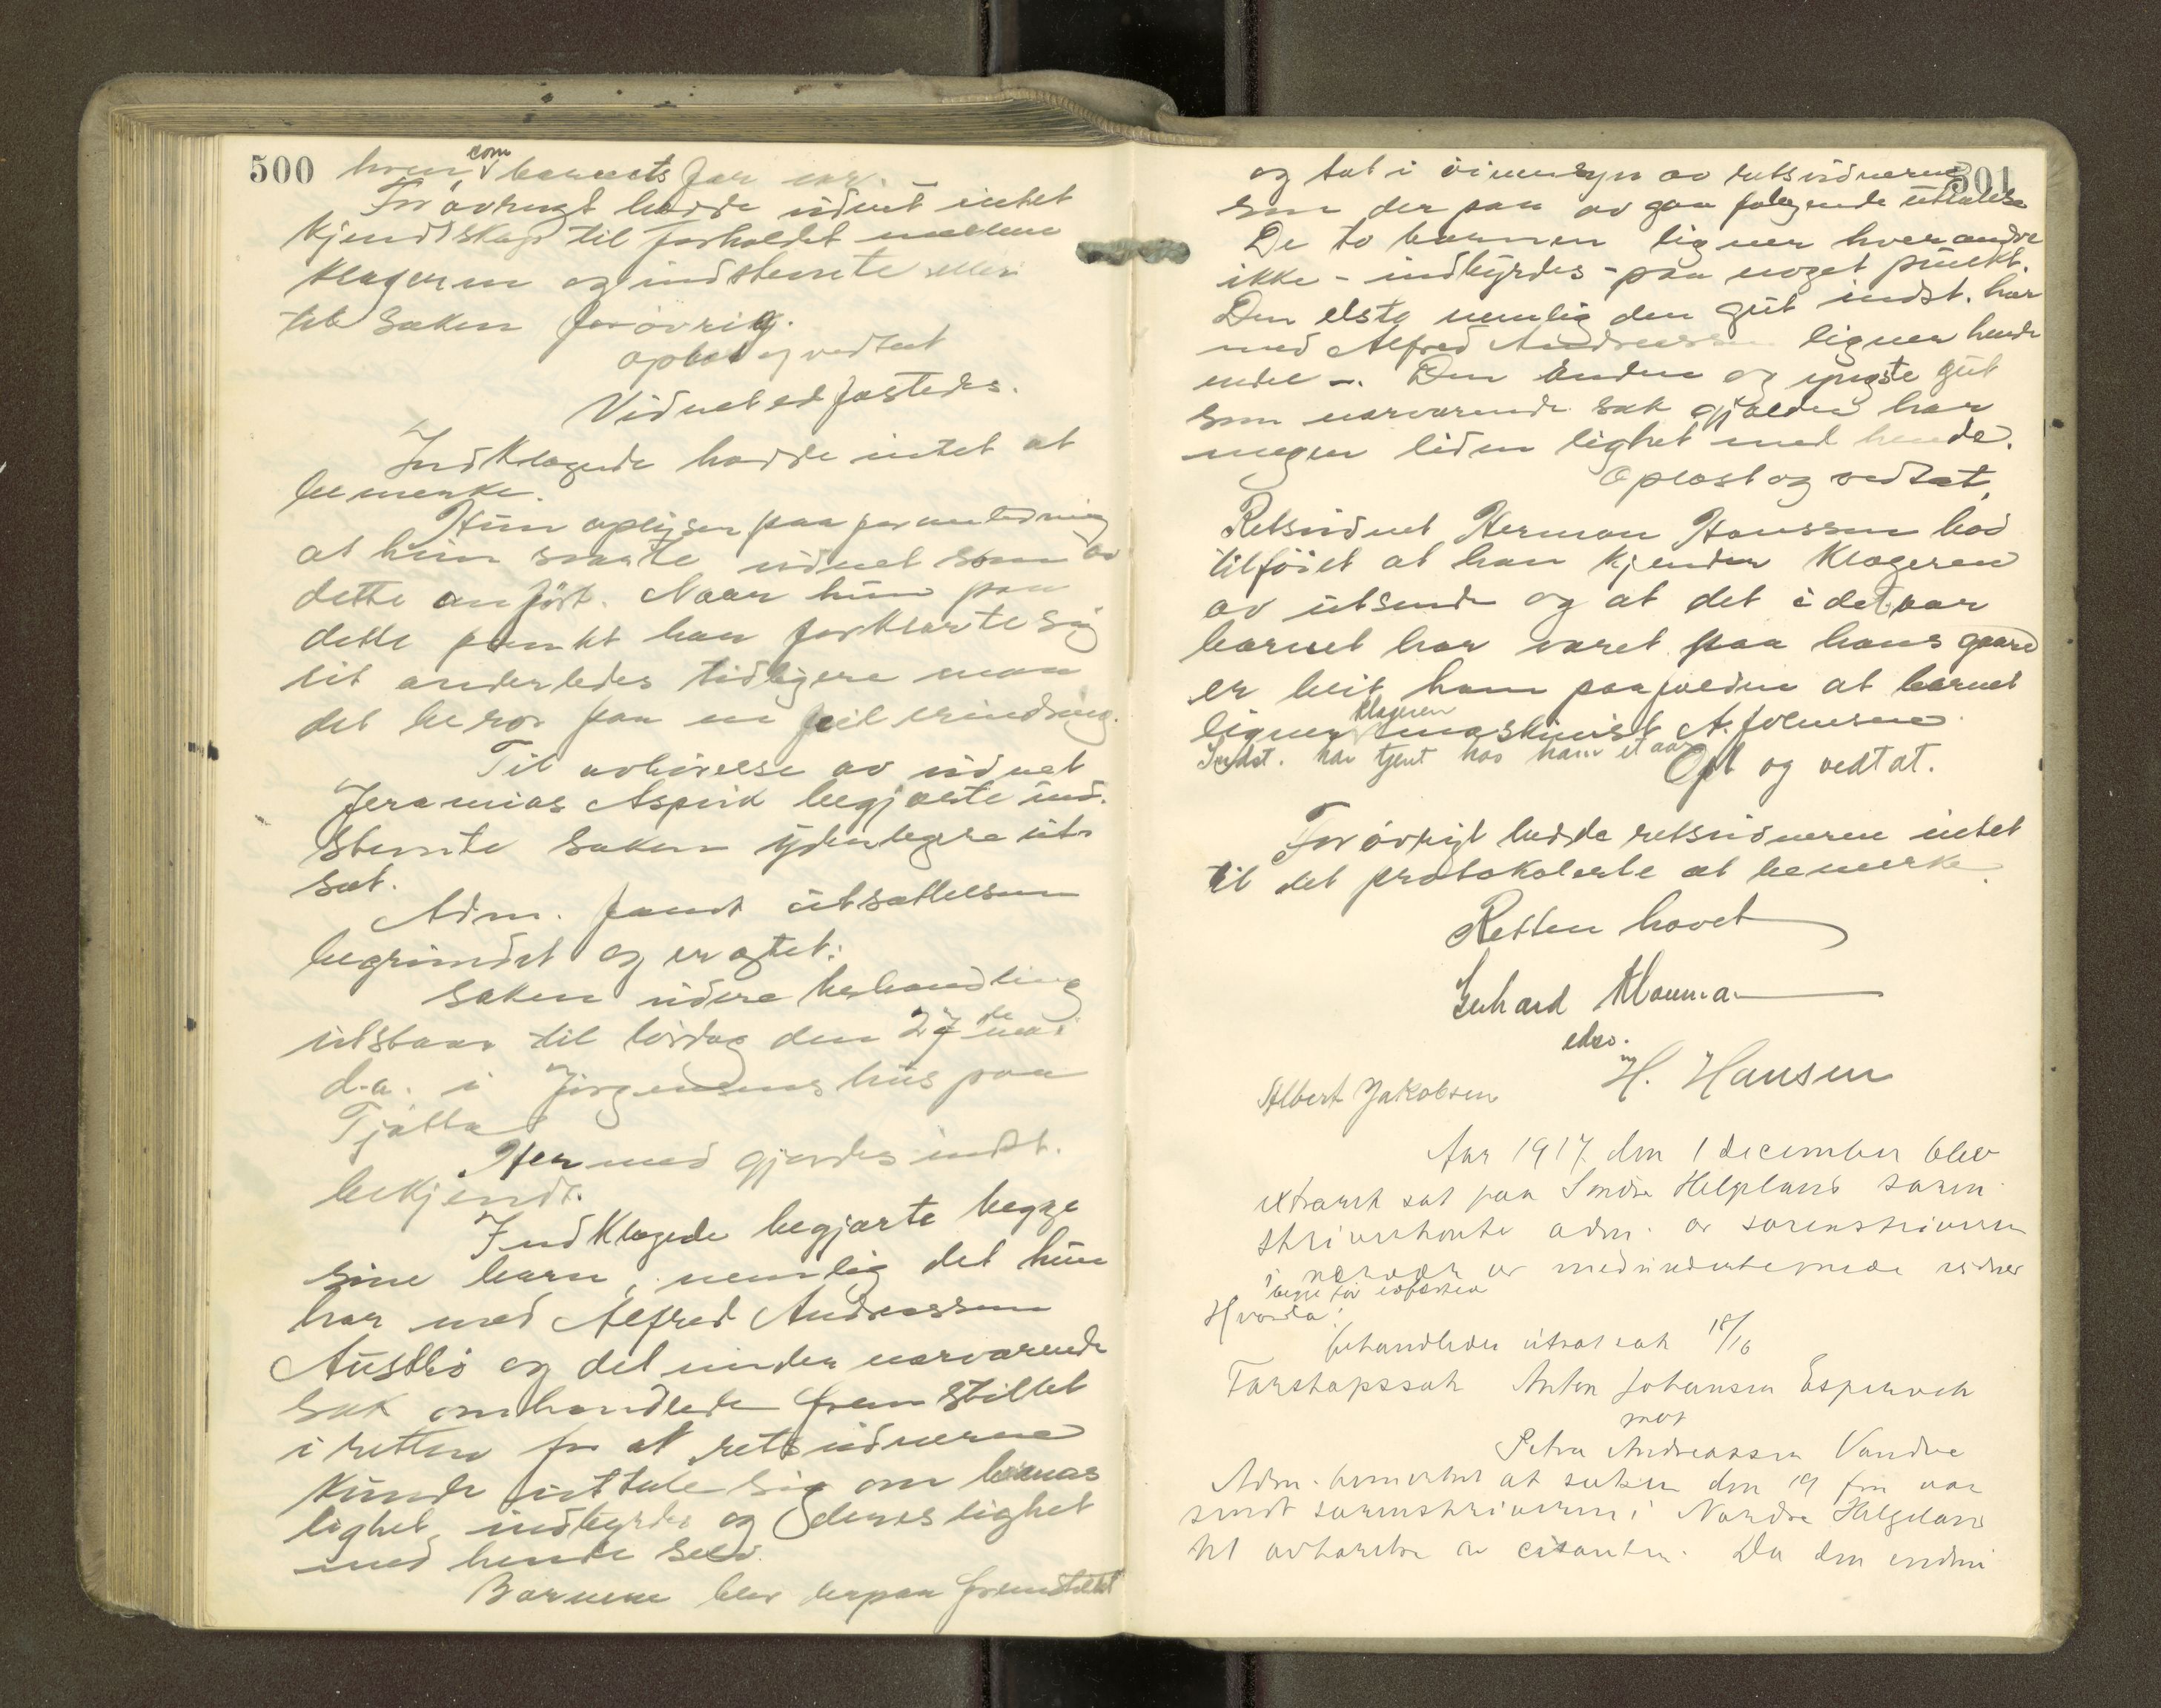 500
hvem som barnets far var.
Forøvrigt hadde vidnet intet
Kjendskap til forholdet mellem
klageren og indstevnte eller
til saken forøvrig.
Oplæst og vedtat
Vidnet edfæstedes.
Indklagede hadde intet at
bemerke.
Hun oplyser paa foranledning
at hun                vidnet som av
dette anført. Naar hun paa
dette punkt har forklart sig
lit anderledes tidligere maa
det bero paa en feilerindring.
Til avhörelse av vidnet
Jeremias Aspvik begjærte ind-
stevnte saken yderligere ut-
sat.
Adm. fandt utsættelsen
begrundet og er agtet:
Saken videre behandling
utstaar til lördag den 27de mai
d.a. i Jörgensens hus paa
Tjøtta
Hermed gjordes indst.
bekjendt.
Indklagede begjærte begge
sine barn, nemlig det hun
har med Alfred Andreassen
Austbö og det under nærværende
sak omhandlede fremstillet
i retten for at retsvidnerne
kunde uttale sig om barnas
lighet indbyrdes og deres lighet
med hende selv.
Barnene blev derpaa fremstillet
501
og tat i öiensyn av retsvidnerne
som derpaa avgav følgende uttalelse
De to barnen ligner hverandre
ikke - indbyrdes - paa noget punkt.
Den elste nemlig den gut indst. har
med Alfred Andreassen ligner hende
endel -. Den anden og yngste gut
som nærværende sak gjælder har
megen liden lighet med hende.
Oplæst og vedtat,
Retsvidnet Herman Hanssen bad
tilföiet at han kjender Klageren
av utseende og at det i det par
barnet har været paa hans gaard
er             ham paafaldende at barnet
ligner klageren maskinist A. Johansen.
Indst. har tjent hos ham et aar
Opl og vedtat.
Forövrigt hadde retsvidnerne intet
til det protokolerte at bemerke.
Retten hævet
Gerhard
edsv.
H. Hansen
Albert Jakobsen
Aar 1917 den 1 december blev
extraret sat paa Søndre Helgeland soren-
skriverkontor adm. av sorenskriveren
i nærvær av medundertegnede vidner
begge for extraret
Hvorda:
behandledes utsat sak 18/16
Farskapssak Anton Johansen Espervik
mot
Petra Andreassen Vandve
Adm. bemerket at saken den 19 fm var
sendt sorenskriveren i Nordre Helgeland
til avhørelse av citanten. Da den endnu